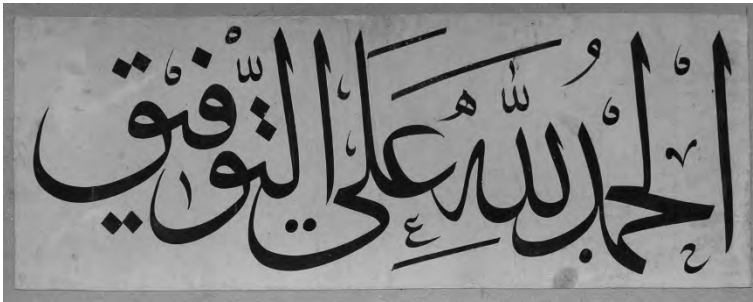 الحمدُ للّٰهِ عَلَى التَّوْفِيْق